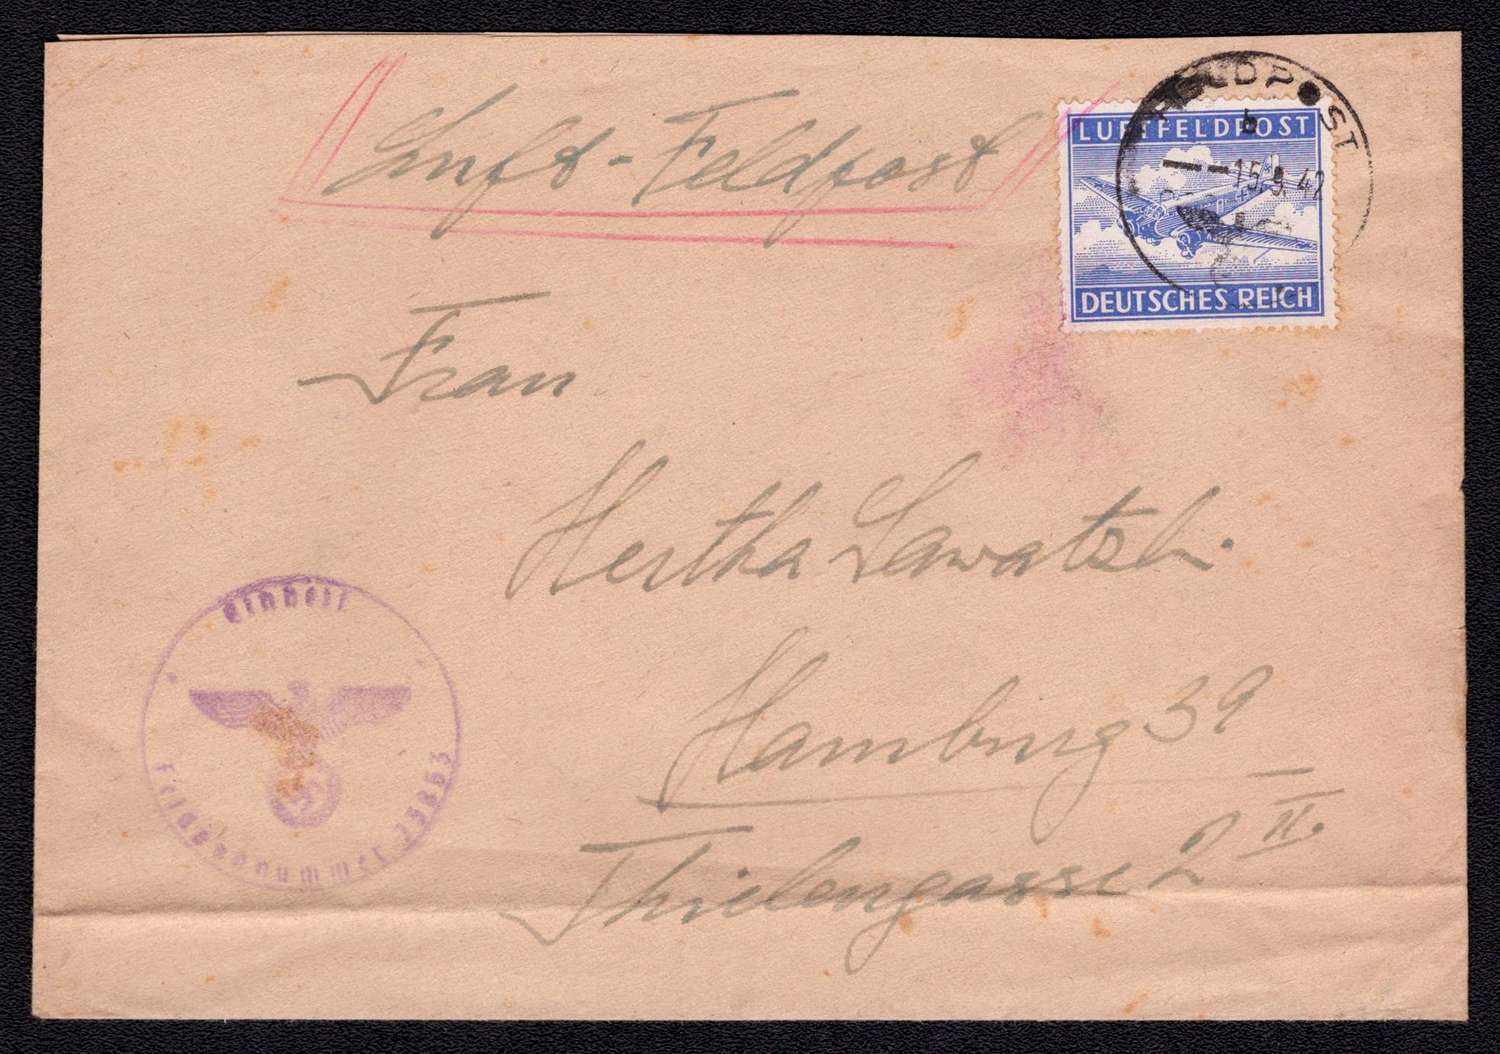 Luft-Feldpost
FELDPOST
b
15.9.42
LUFTFELDPOST
DEUTSCHES REICH
Frau
Hertha Lawatsch.
Hamburg 39
Thielengasse 2 II.
Einheit
Feldpostnummer